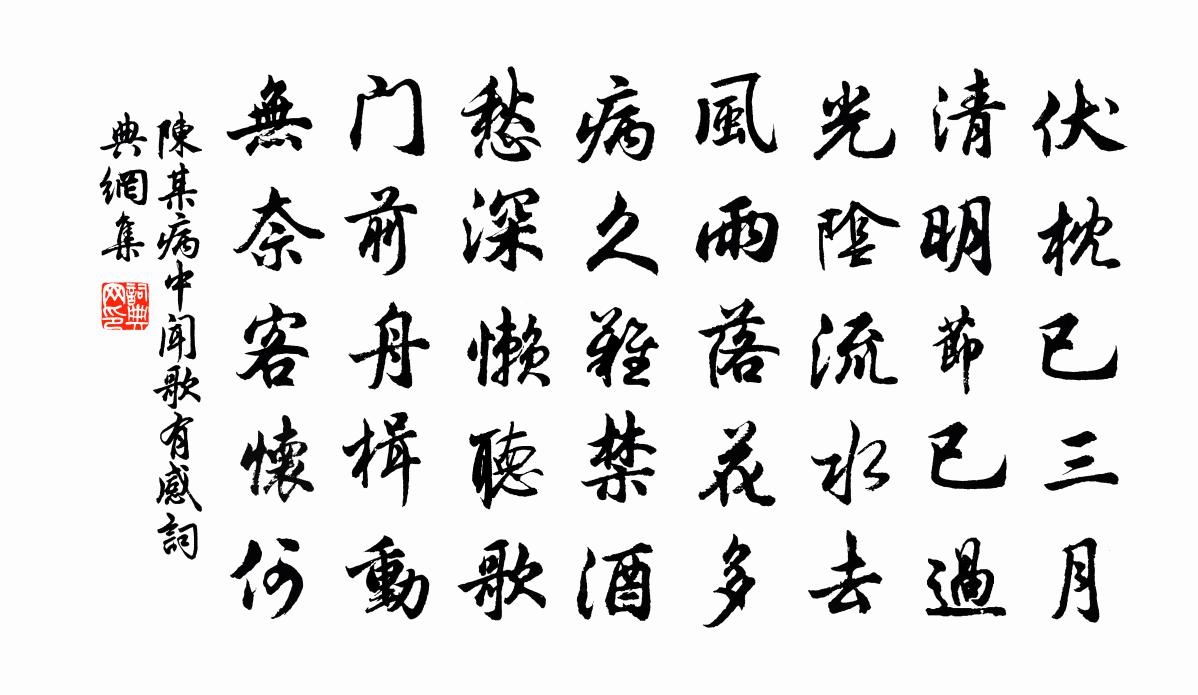 伏枕已三月
清明節已過
光陰流水去
風雨落花多
病久難禁酒
愁深懶聽歌
门前舟楫動
無奈客懷何
陳某病中闻歌有感詞
典網集
詞典
网印